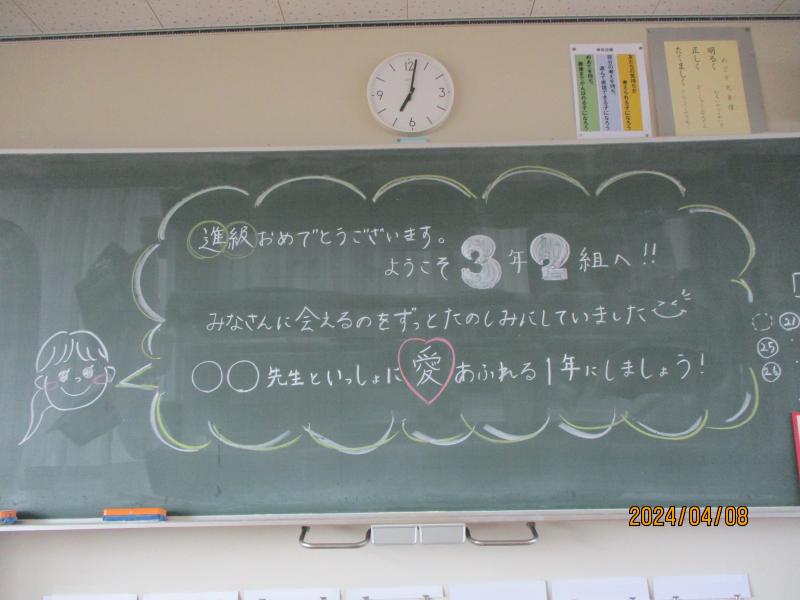 12
3
6
9
めざす児童像
明るく
正しく
たくましく
進級おめでとうございます。
ようこそ 3年2組へ!!
みなさんに会えるのをずっとたのしみにしていました
○○先生といっしょに愛あふれる1年にしましょう!
21
25
26
2024/04/08